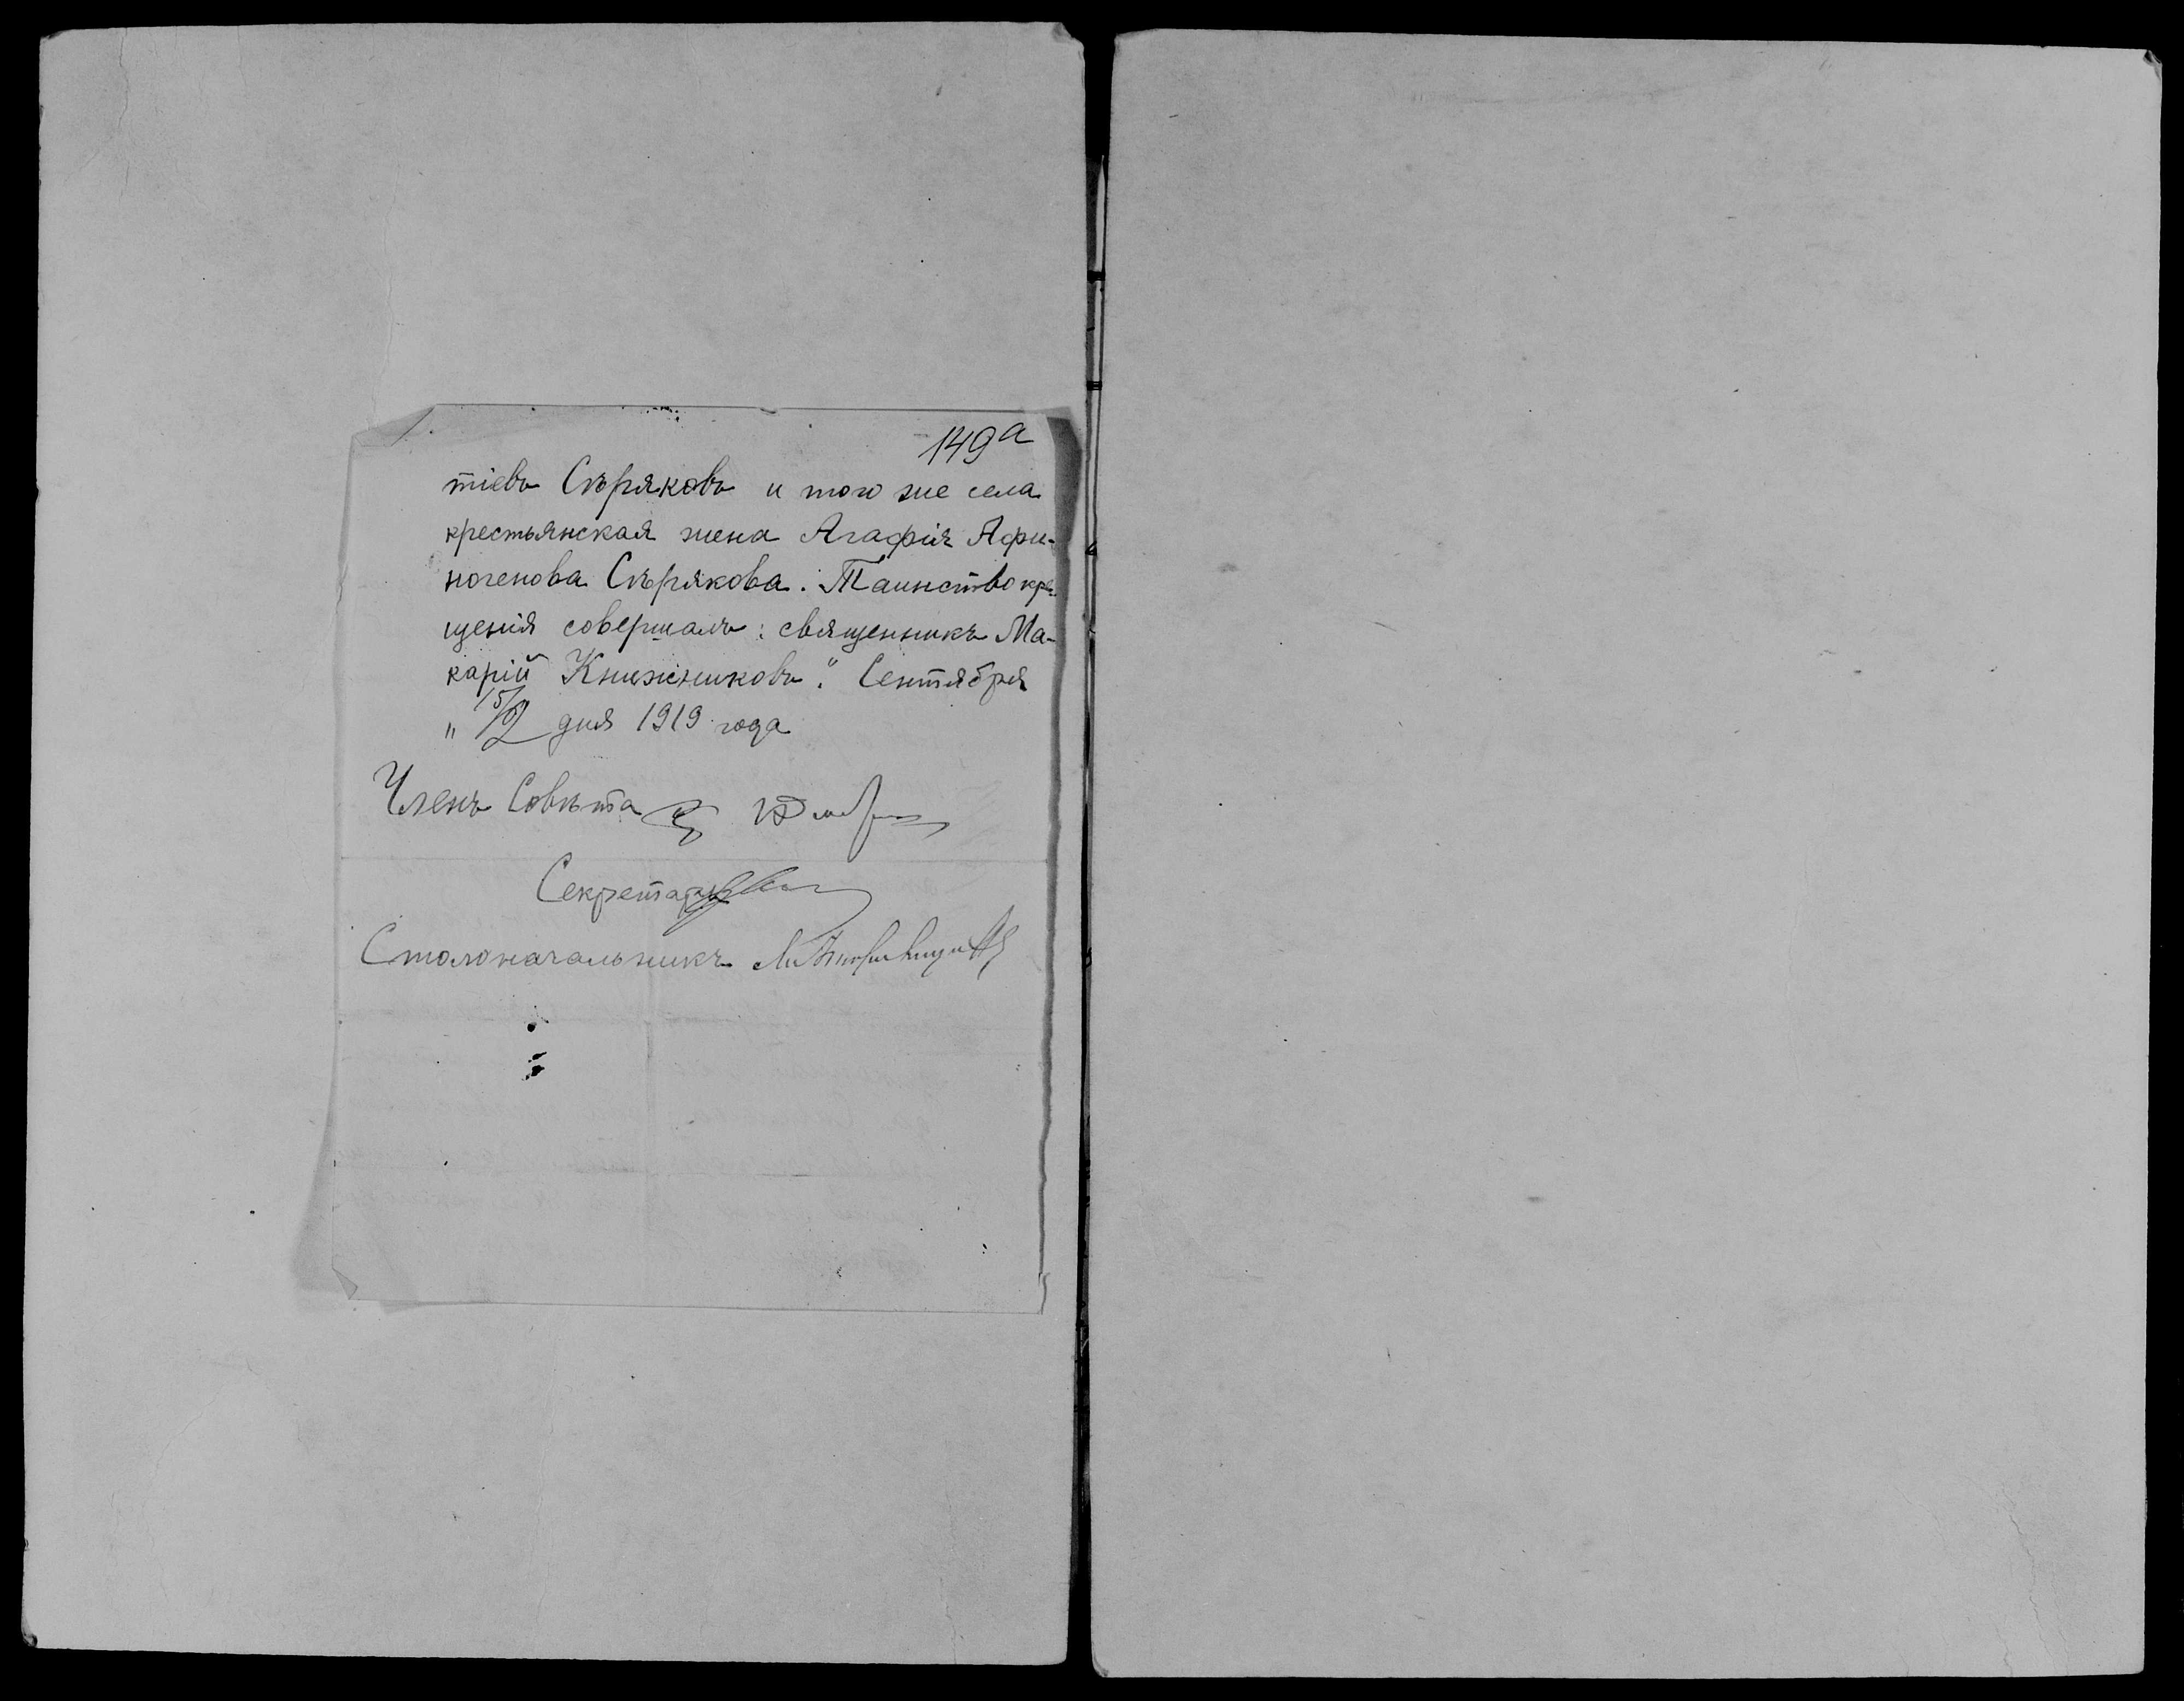 149а
тіевъ Сѣряковъ и того же села
крестьянская жена Агафія Афи-
ногенова Сѣрякова. Таинство кре-
щенія совершалъ: священникъ Ма-
карій Книжниковъ". Сентября
" 15/2 дня 1919 года
Членъ Совѣта
Секретарь
Столоначальникъ